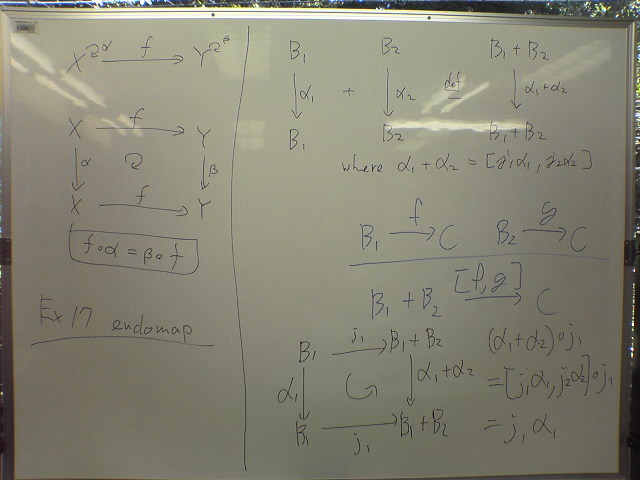 X ↻α —f→ Y ↻β
X —f→ Y
↓α ↻ ↓β
X —f→ Y
f∘α = β∘f
Ex 17 endomap
B₁ B₂ B₁ + B₂
↓α₁ + ↓α₂ def = ↓α₁+α₂
B₁ B₂ B₁ + B₂
where α₁ + α₂ = [j₁α₁, j₂α₂]
B₁ —f→ C B₂ —g→ C
B₁ + B₂ —[f,g]→ C
B₁ —j₁→ B₁ + B₂ (α₁+α₂)∘j₁
α₁↓ ↺ ↓α₁+α₂ = [j₁α₁, j₂α₂]∘j₁
B₁ —j₁→ B₁ + B₂ = j₁α₁